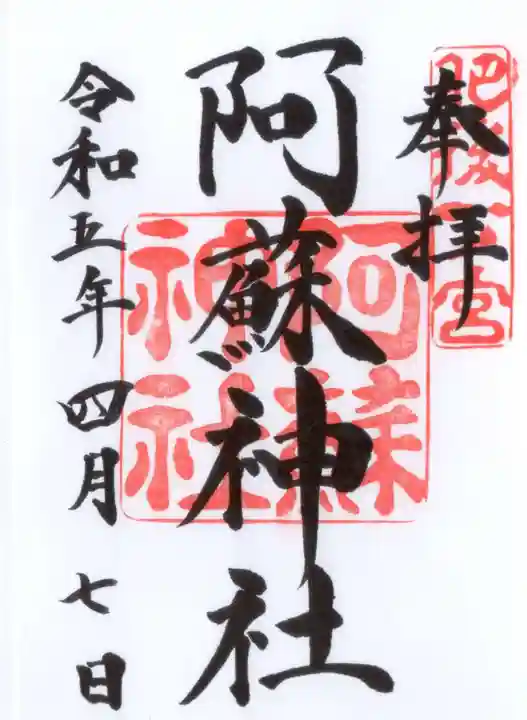 肥後一宮
奉拝
阿蘇神社
阿蘇神社
令和五年四月七日